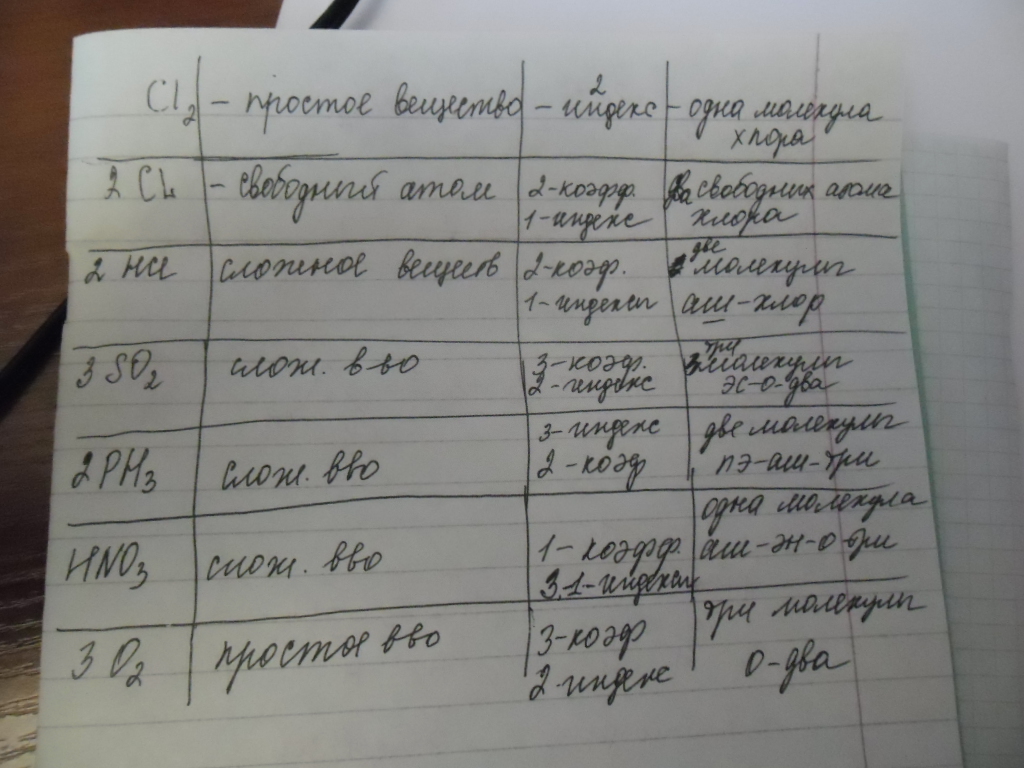 Cl₂ - простое вещество - 2 индекс - одна молекула
хлора
2 Cl - свободный атом 2-коэфф. два свободних атома
1-индекс хлора
2 HCl сложное веществ 2-коэф. две молекулы
1-индексы аш-хлор
3 SO₂ слож. в-во 3-коэф. три молекулы
2-индекс эс-о-два
3-индекс две молекулы
2PH₃ слож. вво 2-коэф пэ-аш-три
одна молекула
HNO₃ слож. вво 1-коэфф. аш-эн-о-три
3,1-индексы
3 O₂ простое вво 3-коэф три молекулы
2-индекс о-два